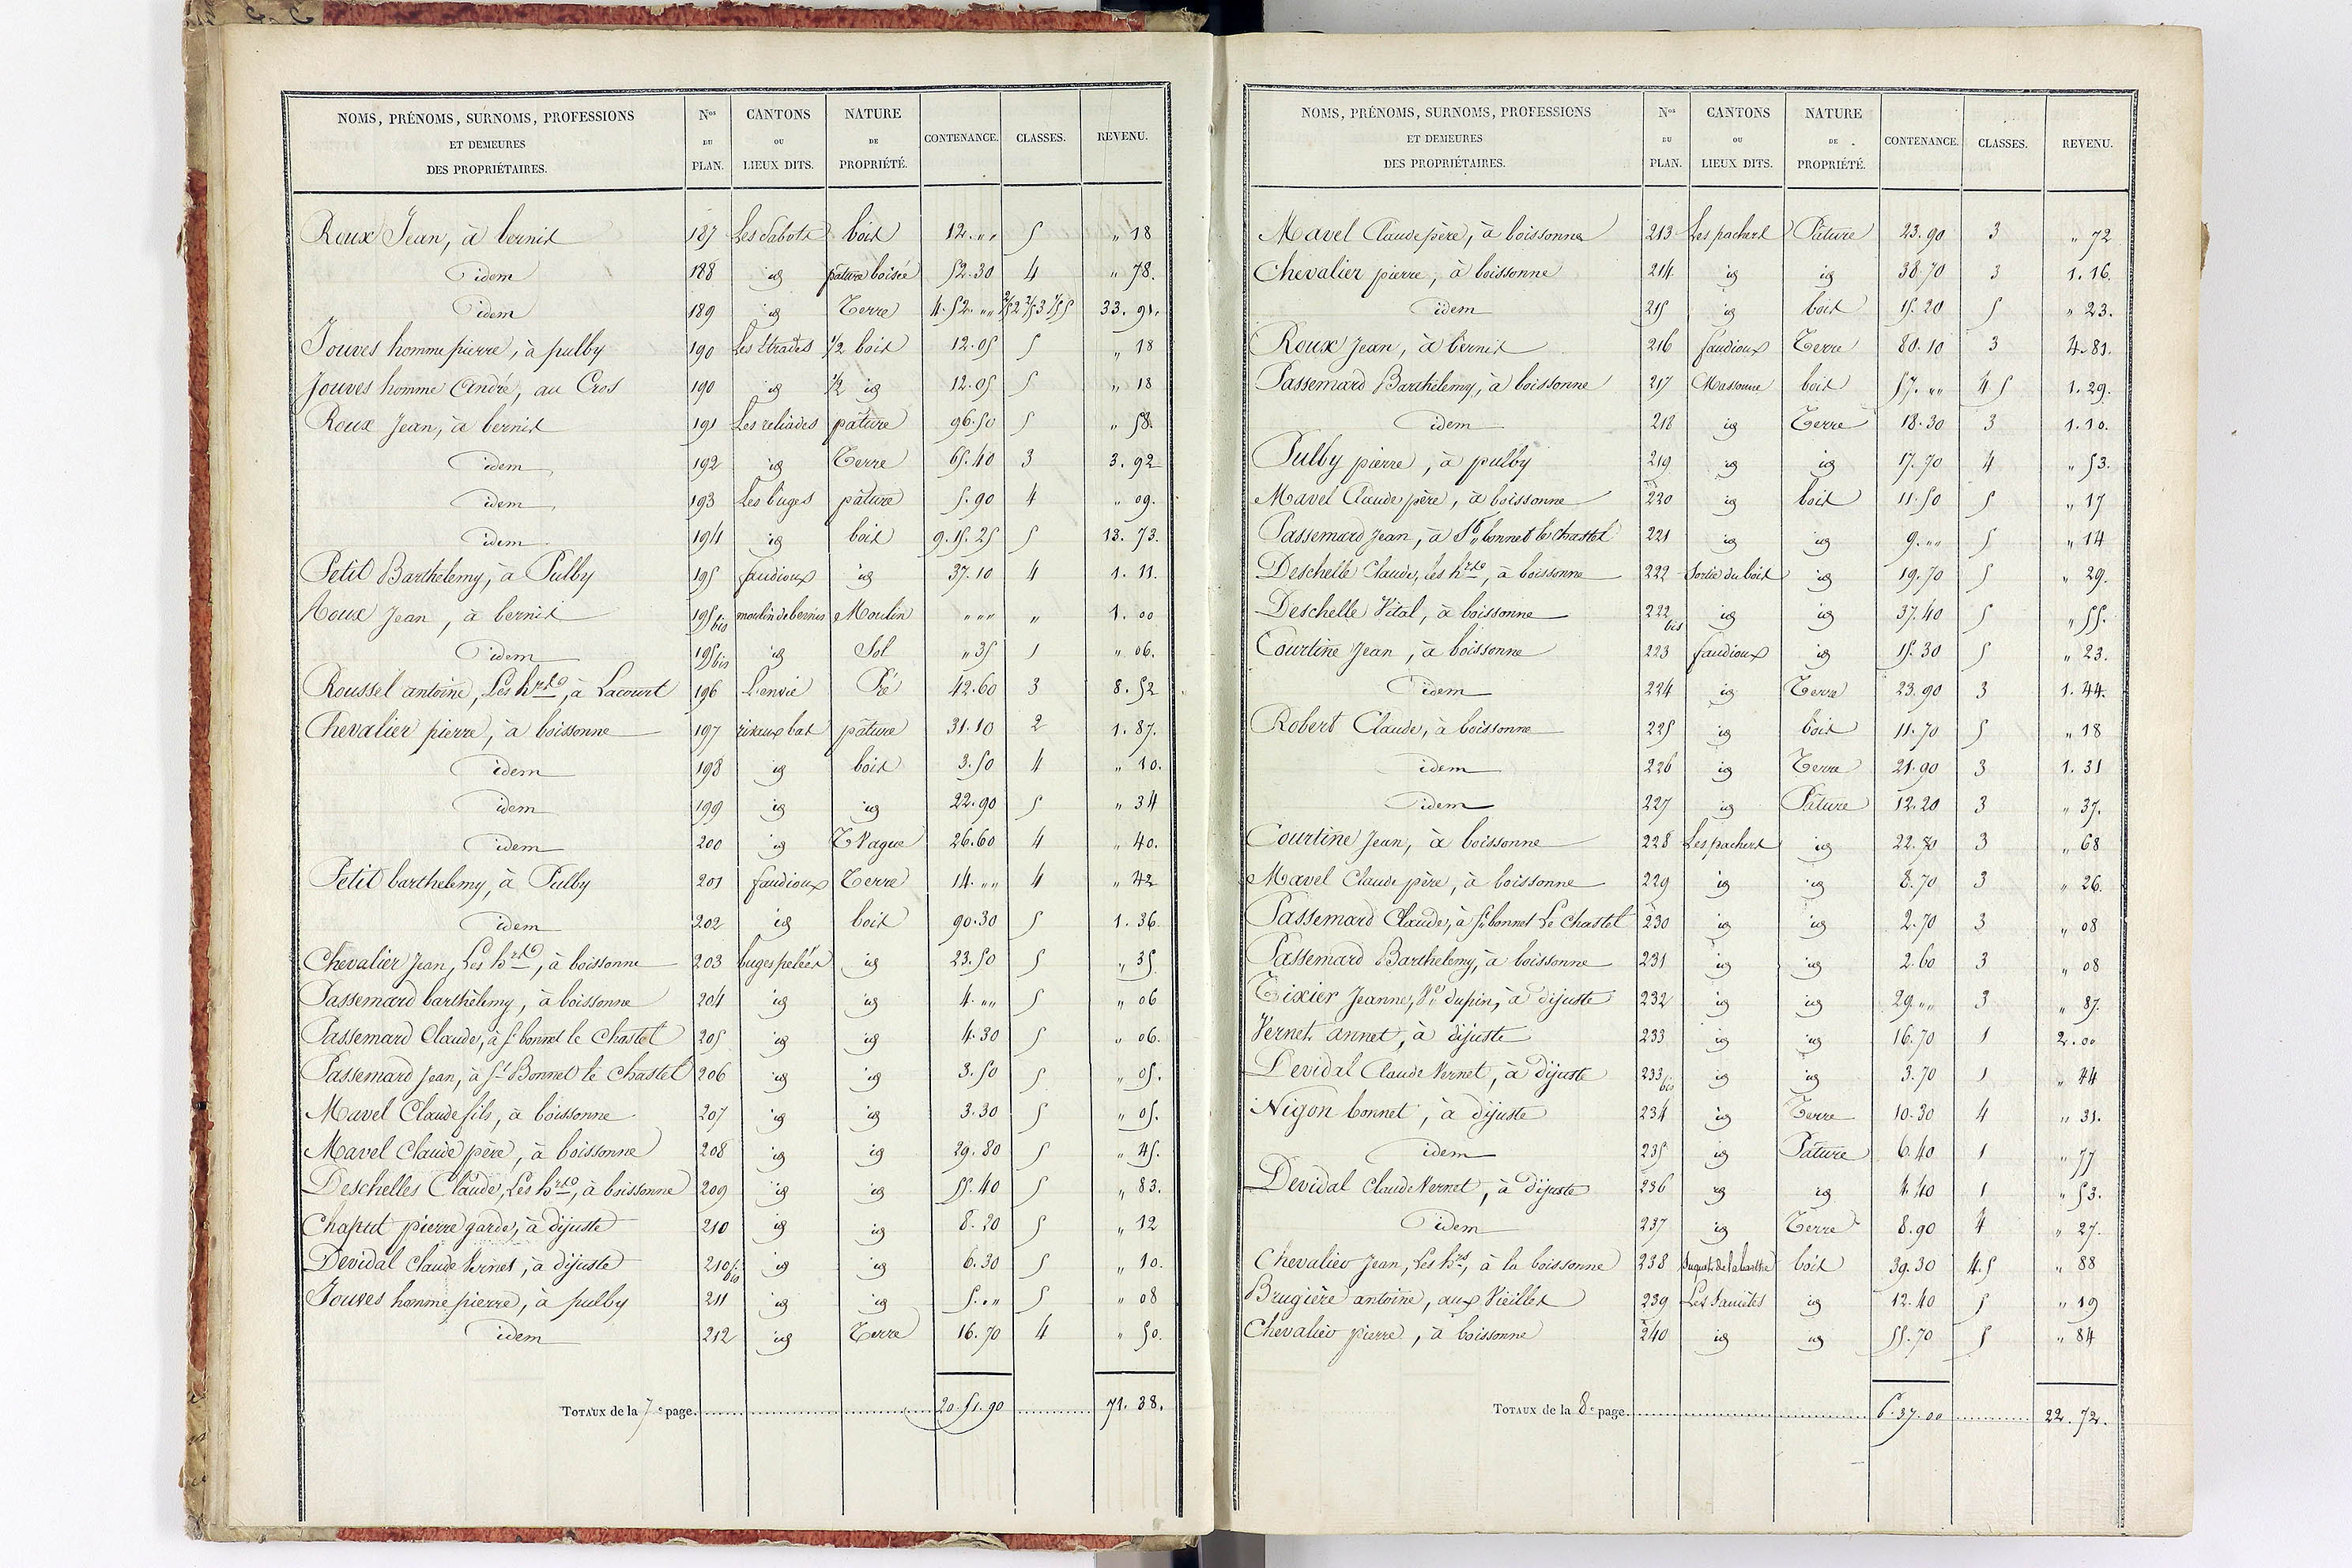 NOMS, PRÉNOMS, SURNOMS, PROFESSIONS ET DEMEURES DES PROPRIÉTAIRES. Nos DU PLAN. CANTONS OU LIEUX DITS. NATURE DE PROPRIÉTÉ. CONTENANCE. CLASSES. REVENU.
Roux Jean, à bernis 187 Les Sabots bois 12. „ „ 5 „ 18
idem 188 id pature boisée 52.30 4 „ 78.
idem 189 id Terre 4.52. „ „ 2/5 2 2/5 3 1/5 5 33.91.
Jouves homme pierre, à pulby 190 Les Strades 1/2 bois 12.05 5 „ 18
Jouves homme André, au Cros 190 id 1/2 id 12.05 5 „ 18
Roux Jean, à bernis 191 Les reliades pâture 96.50 5 „ 58.
idem 192 id Terre 65.40 3 3.92
idem 193 Les buges pâture 5.90 4 „ 09.
idem 194 id bois 9.15.25 5 13.73.
Petit Barthelemy, à Pulby 195 faudioux id 37.10 4 1.11.
Roux Jean, à bernis 195 bis moulin de bernis Moulin „ „ „ „ 1.00
idem 195 bis id Sol „ 35 1 „ 06.
Roussel antoine, Les hrs, à Lacourt 196 L'envie Pré 42.60 3 8.52
Chevalier pierre, à boissonne 197 rivaux bas pâture 31.10 2 1.87.
idem 198 id bois 3.50 4 „ 10.
idem 199 id id 22.90 5 „ 34
idem 200 id T Vague 26.60 4 „ 40.
Petit barthelemy, à Pulby 201 faudioux Terre 14. „ „ 4 „ 42
idem 202 id bois 90.30 5 1.36.
Chevalier Jean, Les hrs, à boissonne 203 buges pelées id 23.50 5 „ 35
Passemard barthélemy, à boissonne 204 id id 4. „ „ 5 „ 06
Passemard Claude, à St bonnet le chastel 205 id id 4.30 5 „ 06.
Passemard Jean, à St Bonnet le chastel 206 id id 3.50 5 „ 05.
Mavel Claude fils, à boissonne 207 id id 3.30 5 „ 05.
Mavel Claude père, à boissonne 208 id id 29.80 5 „ 45.
Deschelles Claude, Les hrs, à boissonne 209 id id 55.40 5 „ 83.
Chaput pierre garde, à dijuste 210 id id 8.20 5 „ 12
Devidal Claude Vernet, à dijuste 210 bis id id 6.30 5 „ 10.
Jouves homme pierre, à pulby 211 id id 5. „ „ 5 „ 08
idem 212 id Terre 16.70 4 „ 50.
TOTAUX de la 7e page 20.51.90 71.38.
NOMS, PRÉNOMS, SURNOMS, PROFESSIONS ET DEMEURES DES PROPRIÉTAIRES. Nos DU PLAN. CANTONS OU LIEUX DITS. NATURE DE PROPRIÉTÉ. CONTENANCE. CLASSES. REVENU.
Mavel Claude père, à boissonne 213 Les pachers Pâture 23.90 3 „ 72
Chevalier pierre, à boissonne 214 id id 38.70 3 1.16.
idem 215 id bois 15.20 5 „ 23.
Roux Jean, à bernis 216 faudioux Terre 80.10 3 4.81.
Passemard Barthélemy, à boissonne 217 Massonne bois 57. „ „ 4 5 1.29.
idem 218 id Terre 18.30 3 1.10.
Pulby pierre, à pulby 219 id id 17.70 4 „ 53.
Mavel Claude père, à boissonne 220 id bois 11.50 5 „ 17
Passemard Jean, à St bonnet le chastel 221 id id 9. „ „ 5 „ 14
Deschelle Claude, les hrs, à boissonne 222 Sortie du bois id 19.70 5 „ 29.
Deschelle Vital, à boissonne 222 bis id id 37.40 5 „ 55.
Courtine Jean, à boissonne 223 faudioux id 15.30 5 „ 23.
idem 224 id Terre 23.90 3 1.44.
Robert Claude, à boissonne 225 id bois 11.70 5 „ 18
idem 226 id Terre 21.90 3 1.31
idem 227 id Pâture 12.20 3 „ 37.
Courtine Jean, à boissonne 228 Les pachers id 22.70 3 „ 68
Mavel Claude père, à boissonne 229 id id 8.70 3 „ 26.
Passemard Claude, à St bonnet Le chastel 230 id id 2.70 3 „ 08
Passemard Barthelemy, à boissonne 231 id id 2.60 3 „ 08
Tixier Jeanne, Ve dupin, à dijuste 232 id id 29. „ „ 3 „ 87.
Vernet annet, à dijuste 233 id id 16.70 1 2.00
Devidal Claude Vernet, à dijuste 233 bis id id 3.70 1 „ 44
Nigon bonnet, à dijuste 234 id Terre 10.30 4 „ 31.
idem 235 id Pâture 6.40 1 „ 77
Devidal Claude Vernet, à dijuste 236 id id 4.40 1 „ 53.
idem 237 id Terre 8.90 4 „ 27.
Chevalier Jean, Les hrs, à la boissonne 238 bois 39.30 4.5 „ 88
Brugière antoine, aux Vieilles 239 Les id 12.40 5 „ 19
Chevalier pierre, à boissonne 240 id id 55.70 5 „ 84
TOTAUX de la 8e page 6.37.00 22.72.